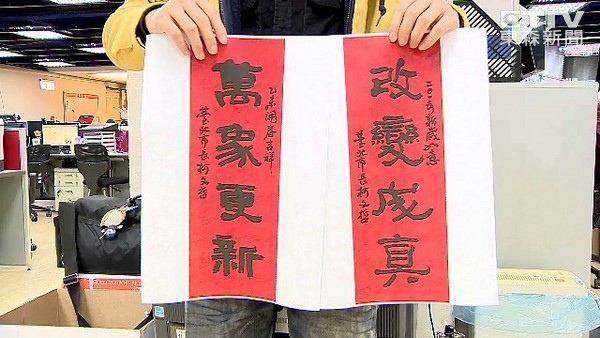 ETTV
東森新聞
二〇一五新歲如意
改變成真
臺北市長柯文哲
乙未開春吉祥
萬象更新
臺北市長柯文哲